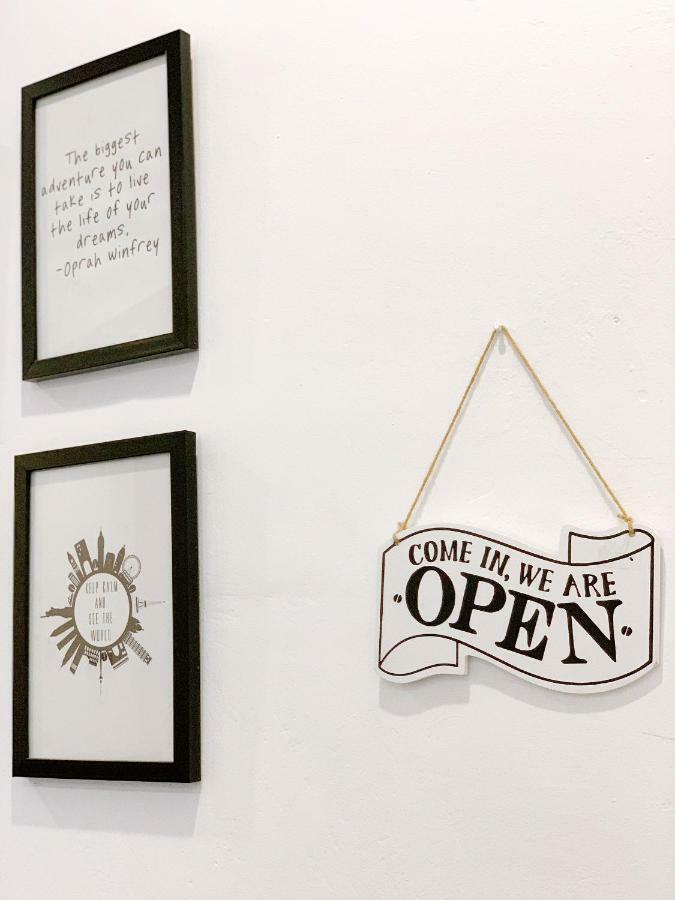 The biggest
adventure you can
take is to live
the life of your
dreams.
-Oprah Winfrey
KEEP CALM
AND
SEE THE
WORLD
COME IN, WE ARE
OPEN